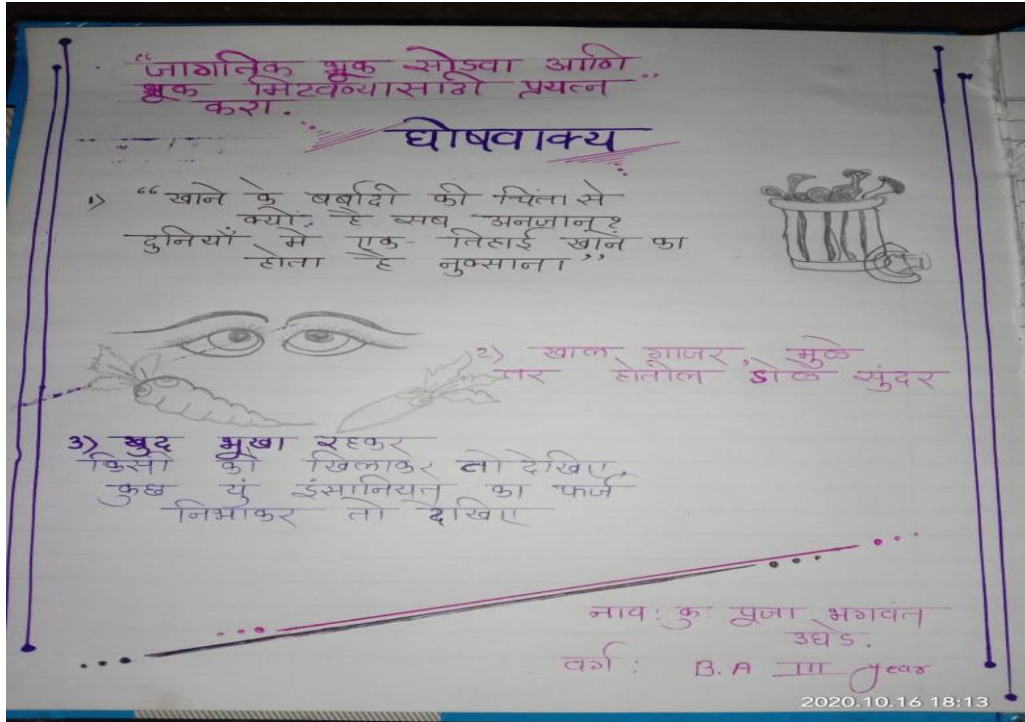 “जागतिक भूक सोडवा आणि
भूक मिटवण्यासाठी प्रयत्न”
करा.
घोषवाक्य
1) “खाने के बर्बादी की चिंता से
क्यों है सब अनजान?
दुनियाँ मे एक-तिहाई खाने का
होता है नुक्सान।”
2) खाल गाजर, मुळे
तर होतील डोळे सुंदर
3) खुद भूखा रहकर
किसी को खिलाकर तो देखिए,
कुछ युं इंसानियत का फर्ज
निभाकर तो देखिए
नाव: कु पूजा भगवंत
उघडे.
वर्ग: B.A III year
2020.10.16 18:13